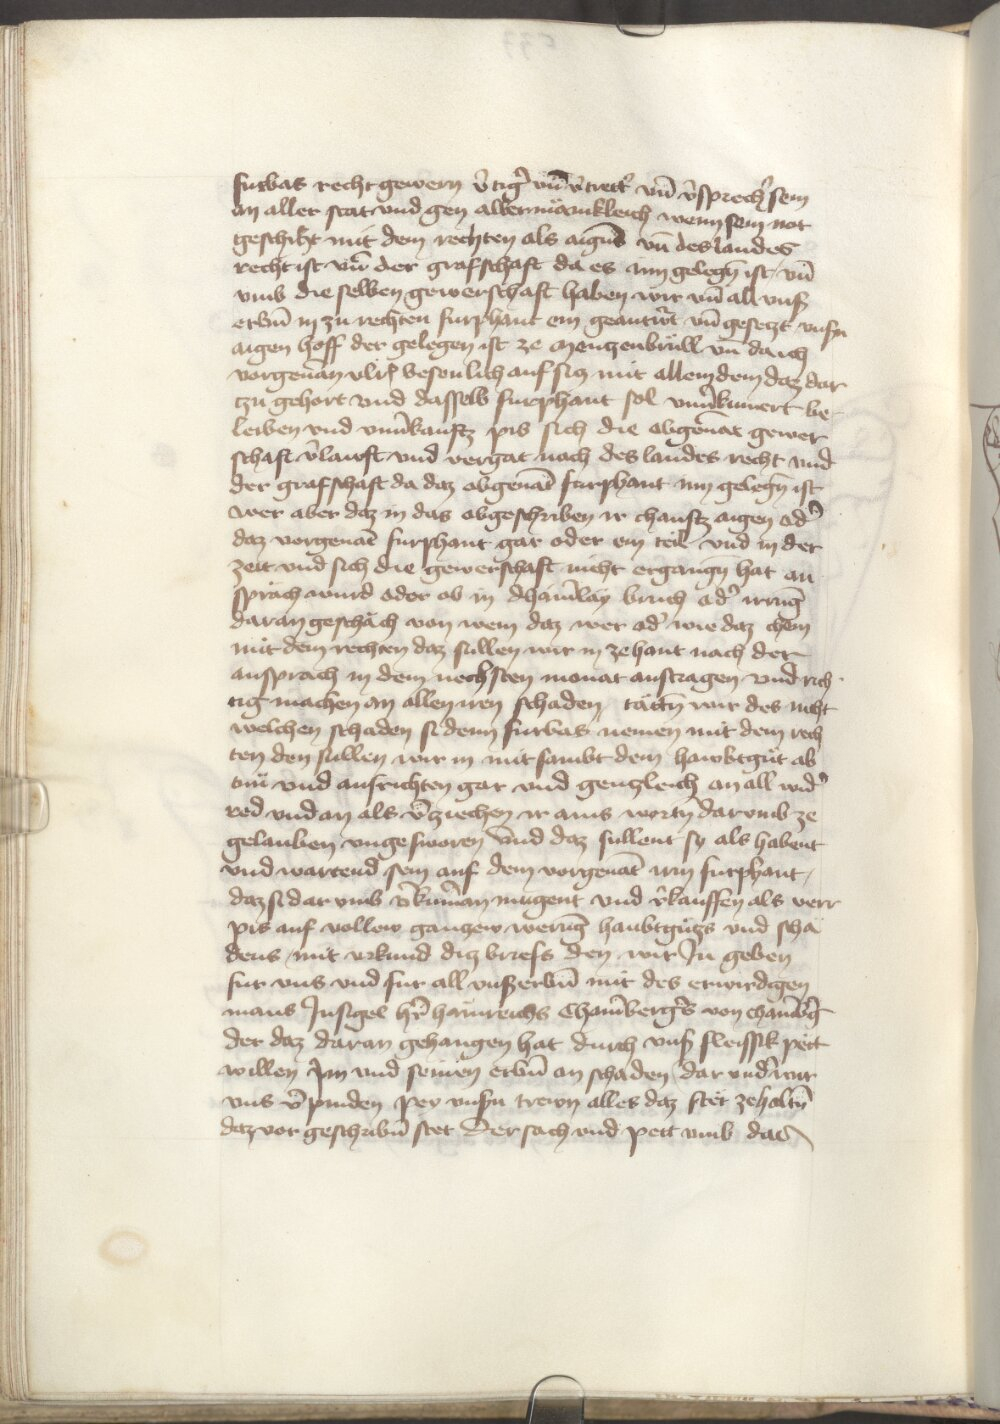 furbas recht gewern v̄tigᷣ vn̄ v̄trettᷣ vn̄ v̄sprechᷣ sein
an aller stat vnd gen allermänikleich wenn sein not
geschikt mit dem rechten als aigns vn̄ des landes
recht ist vn̄ der grafschaft da es inn gelegn̄ ist vn̄
vmb die selben gewerschaft haben wir vn̄ all vnsᷣ
erbn̄ in zu rechten furphant ein geantwᷣt vn̄ gesetzt vnsᷣn
aigen hoff der gelegen ist ze Mentzenbrüll vn̄ da ich
vorgenan̄ besvnlich auf sitz mit allem dem daz dar
tzu gehort vnd dasselb furphant sol vnuᷣkumert be
leiben vnd vnuᷣkauftz pis sich die obgen̄at gewer
schaft vᷣlawft vnd vergat nach des landes recht vnd
der grafschaft da daz obgenāt furphant inn gelegn̄ ist
Wer aber daz in das obgeschriben ir chauftz aigen odᷣ
daz vorgenāt furphant gar oder ein teil vnd in der
zeit vnd sich die gewerschaft nicht ergangn̄ hat an
sprach wurd oder ob in dhainᷣlay bruch odᷣ irrūg
daran geschäch von wem daz wer odᷣ wie daz chem
mit dem rechten daz sullen wir in zehant nach der
ansprach in dem nechsten monat austragen vnd rich
tig machen an allen iren schaden tättn̄ wir des nicht
welchen schaden si denn furbas nemen mit dem rech
ten den sullen wir in mit sambt dem hawbtgut ab
tuͤn vnd ausrichten gar vnd gentzleich an all widᷣ
red vnd an als v̄ziechen ir ains wortn̄ darvmb ze
gelauben vngesworen Vnd daz sullent sy als habent
vnd wartend sein auf dem vorgenāt irm furphant
daz si dar vmb vᷣkumᷣan mugent vnd vᷣkauffen als verr
pis auf vollew gantzew werūg haubtgutzs vnd scha
dens mit vrkund ditz briefs den wir In geben
fur vns vnd fur all vnsᷣ erbn̄ mit des erwirdigen
mans Insigel hᷣr hainreichs Chamᷣbergᷣs von chamᷣbᷣg
der daz daran gehangen hat durch vnsᷣ fleissik pett
willen Im vnd seinen erbn̄ an schaden dar vndᷣ wir
vns v̄pinden pey vnsᷣn trewn alles daz stet zehaltn̄
daz vor geschribn̄ stet Der sach vnd pett vmb daz